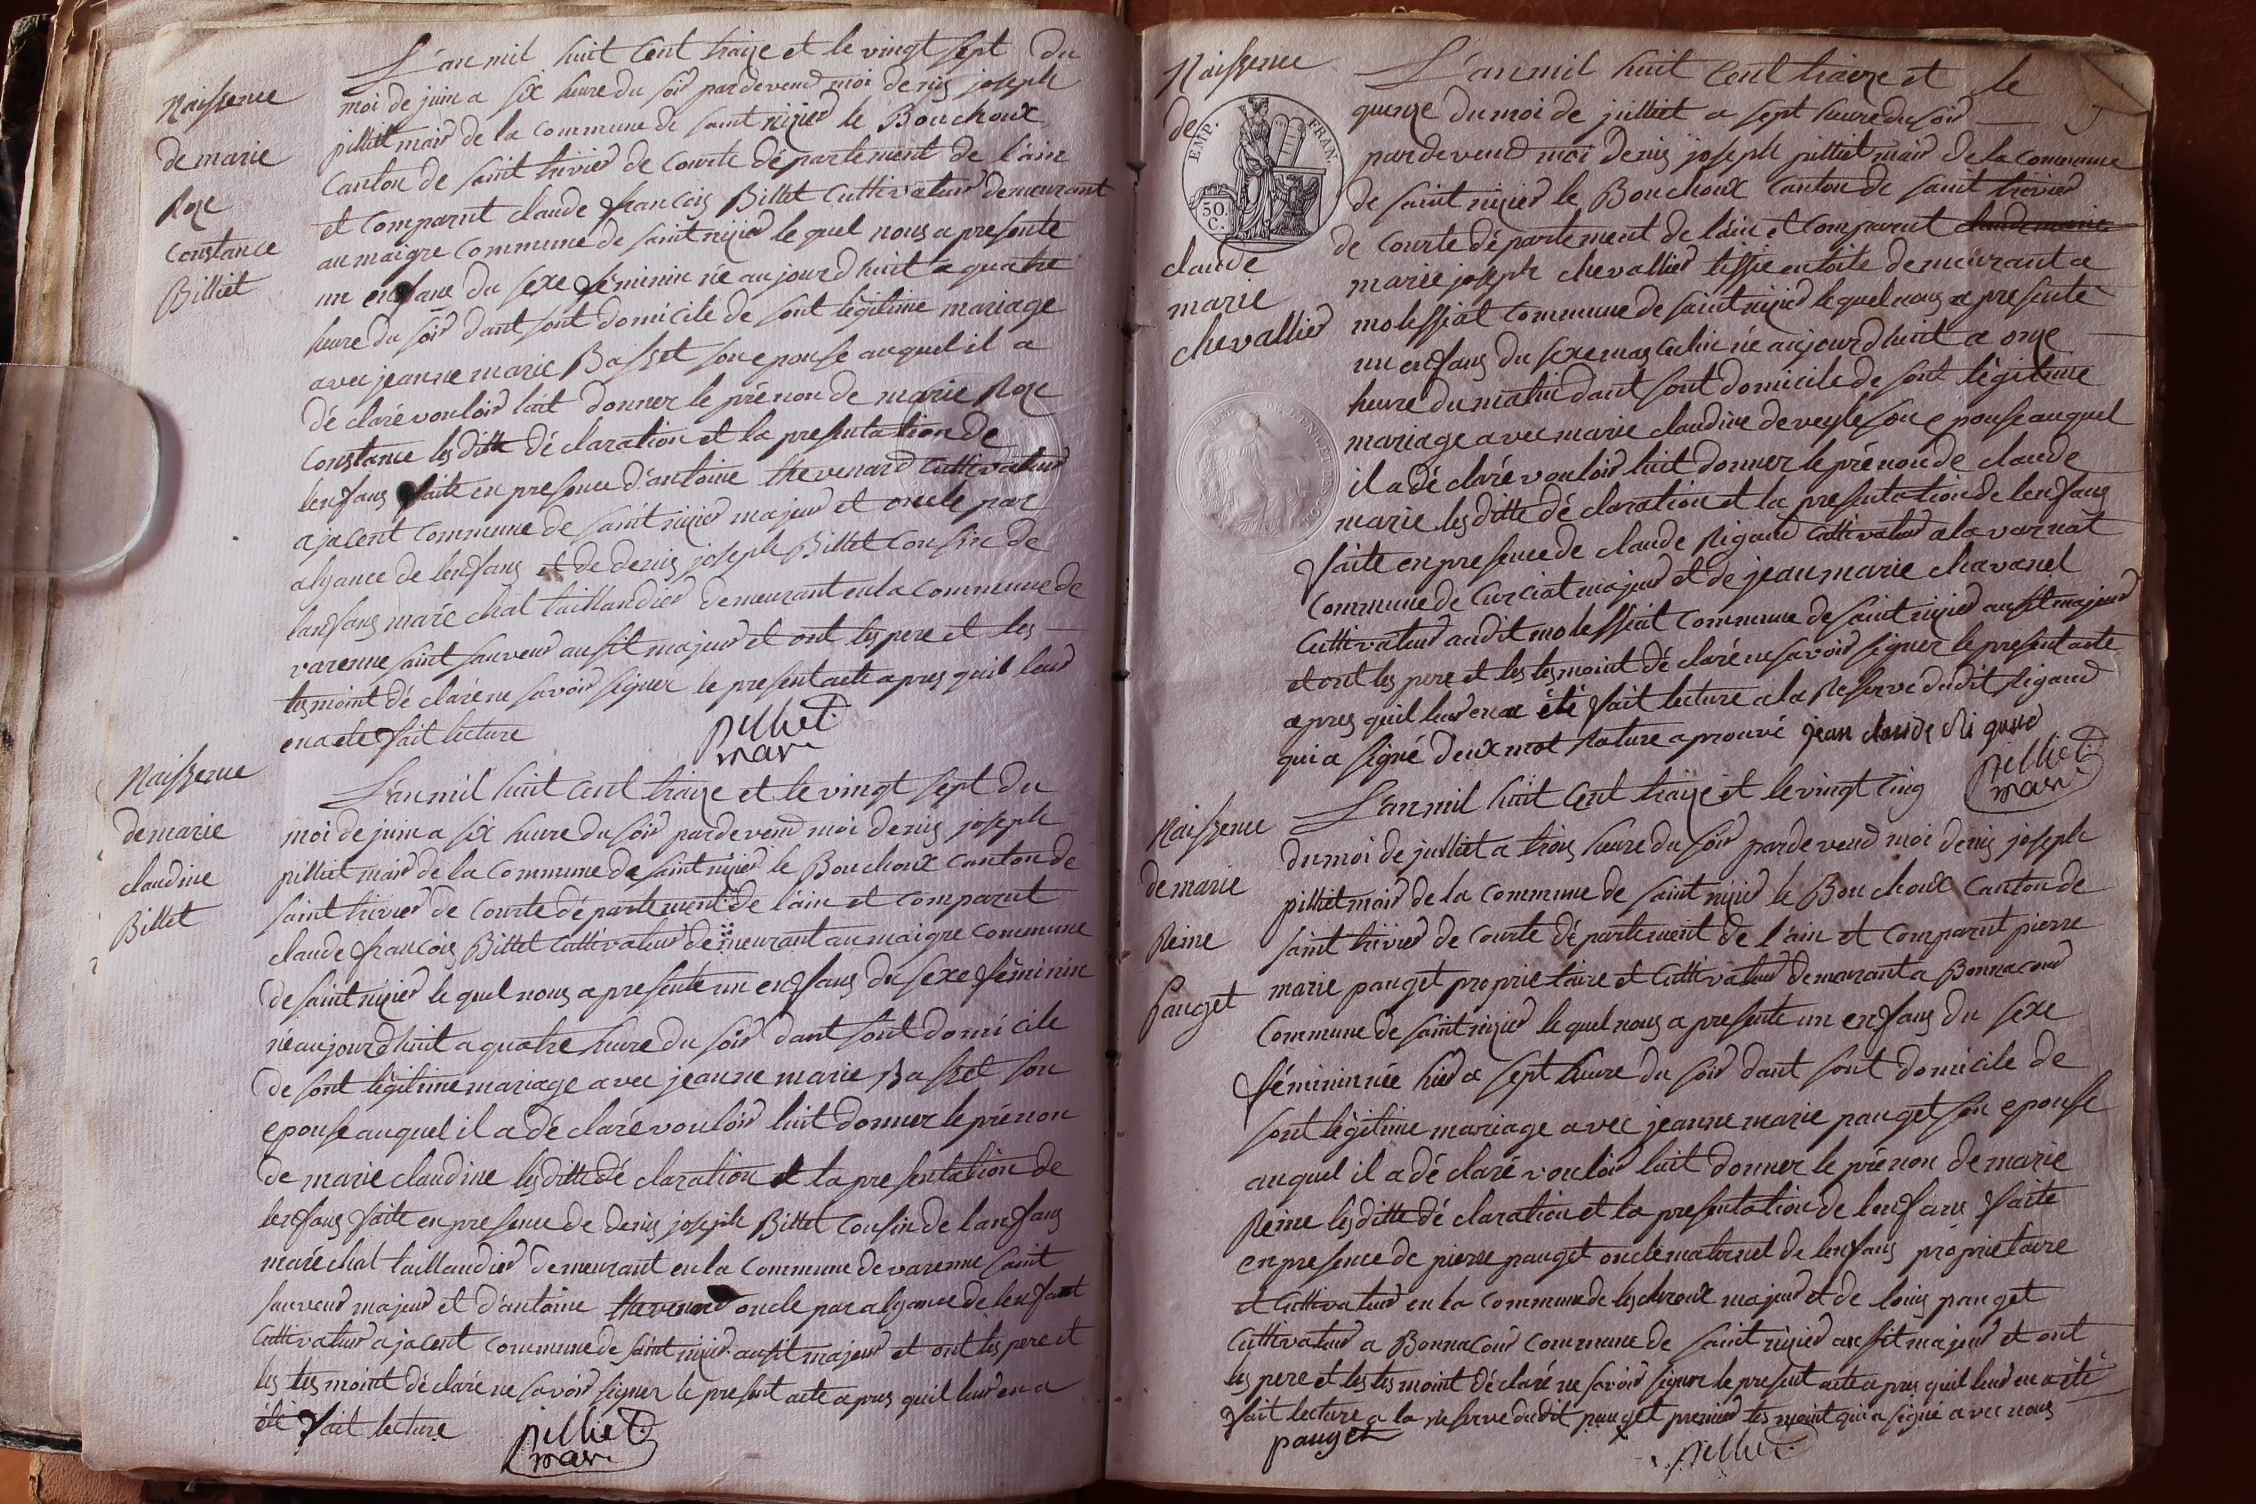 Naissence
de marie
Roze
Constance
Billiet
L'an mil huit cent traize et le vingt sept du
moi de juin a six heure du soir pardevend moi denis joseph
pilliet mair de la commune de saint nizier le Bouchoux
Canton de saint trivier de Courte département de l'ain
et comparut claude françois Billet Cultivateur demeurant
au maigre commune de saint nizier le quel nous a presente
un enfans du sexe féminin née aujourdhuit a quatre
heure du soir dant sont domicile de sont légitime mariage
avec jeanne marie Basset son epouse auquel il a
dé claré vouloir luit donner le prénon de marie Roze
Constance les ditte dé claration et la presentation de
lenfans faite en presence d'antoine thevenard Cultivateur
a jacent Commune de saint nizier majeur et oncle par
alyance de lenfans et de denis joseph Billet Cousin de
lanfans maréchal taillandier demeurant en la commune de
varenne saint sauveur ausit majeur et ont les pere et les
tesmoint dé claré ne savoir signer le present acte apres quil leur
en a ete fait lecture
pilliet
mair
Naissence
de marie
claudine
Billet
L'an mil huit cent traize et le vingt sept du
moi de juin a six heure du soir pardevend moi denis joseph
pilliet mair de la commune de saint nizier le Bouchoux canton de
saint trivier de Courte département de l'ain et comparut
claude françois Billet Cultivateur demeurant au maigre commune
de saint nizier le quel nous a presente un enfans du sexe féminin
née aujourdhuit a quatre heure du soir dant sont domicile
de sont légitime mariage avec jeanne marie Basset son
epouse auquel il a dé claré vouloir luit donner le prénon
de marie claudine les ditte dé claration et la presentation de
lenfans faite en presence de denis joseph Billet Cousin de lanfans
maréchal taillandier demeurant en la commune de varenne saint
sauveur majeur et d'antoine thevenard oncle par alyance de lenfant
Cultivateur a jacent commune de saint nizier ausit majeur et ont les pere et
les tesmoint dé claré ne savoir signer le present acte apres quil leur en a
été fait lecture
pilliet
mair
Naissence
de
EMP. FRAN.
50.
C.
claude
marie
chevallier
L'an mil huit cent traize et le
quenze du moi de juilliet a sept heure du soir
pardevend moi denis joseph pilliet mair de la commune
de saint nizier le Bouchoux Canton de saint trivier
de Courte département de l'ain et comparut claude marie
marie joseph chevallier tissié en toile demeurant a
molessiat commune de saint nizier le quel nous a presenté
un enfans du sexe masculin né aujourdhuit a onze
heure du matin dant sont domicile de sont légitime
mariage avec marie claudine deveyle son epouse auquel
il a dé claré vouloir luit donner le prénon de claude
marie les ditte dé claration et la presentation de lenfans
faite en presence de claude Rigaud Cultivateur a la varnat
commune de Curciat majeur et de jean marie chavanel
Cultivateur audit molessiat commune de saint nizier ausit majeur
et ont les pere et les tesmoint dé claré ne savoir signer le present acte
apres quil leur en a été fait lecture a la Reserve dudit Rigaud
qui a signé deux mot Rature aprouvé jean claude Rigaud
pilliet
mair
Naissence
de marie
Reine
pauget
L'an mil huit cent traize et le vingt cinq
du moi de juilliet a trois heure du soir pardevend moi denis joseph
pilliet mair de la commune de saint nizier le Bouchoux Canton de
saint trivier de Courte département de l'ain et comparut pierre
marie pauget proprietaire et Cultivateur demurant a Bonnacour
commune de saint nizier le quel nous a presente un enfans du sexe
féminin née hier a sept heure du soir dant sont domicile de
sont légitime mariage avec jeanne marie pauget son epouse
auquel il a dé claré vouloir luit donner le prénon de marie
Reine les ditte dé claration et la presentation de lenfans faite
en presence de pierre pauget oncle maternel de lenfans proprietaire
et Cultivateur en la commune de lescheroux majeur et de louis pauget
Cultivateur a Bonnacour commune de saint nizier ausit majeur et ont
les pere et les tesmoint dé claré ne savoir signer le present acte apres quil leur en a été
fait lecture a la reserve dudit pauget premier tesmoint qui a signé avec nous
pauget
pilliet